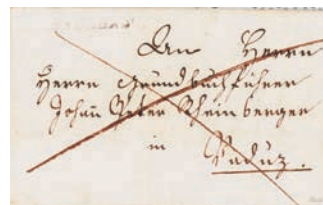 An Herrn
Herrn Grundbuchführer
Johañ Peter Rheinberger
in
Vaduz.